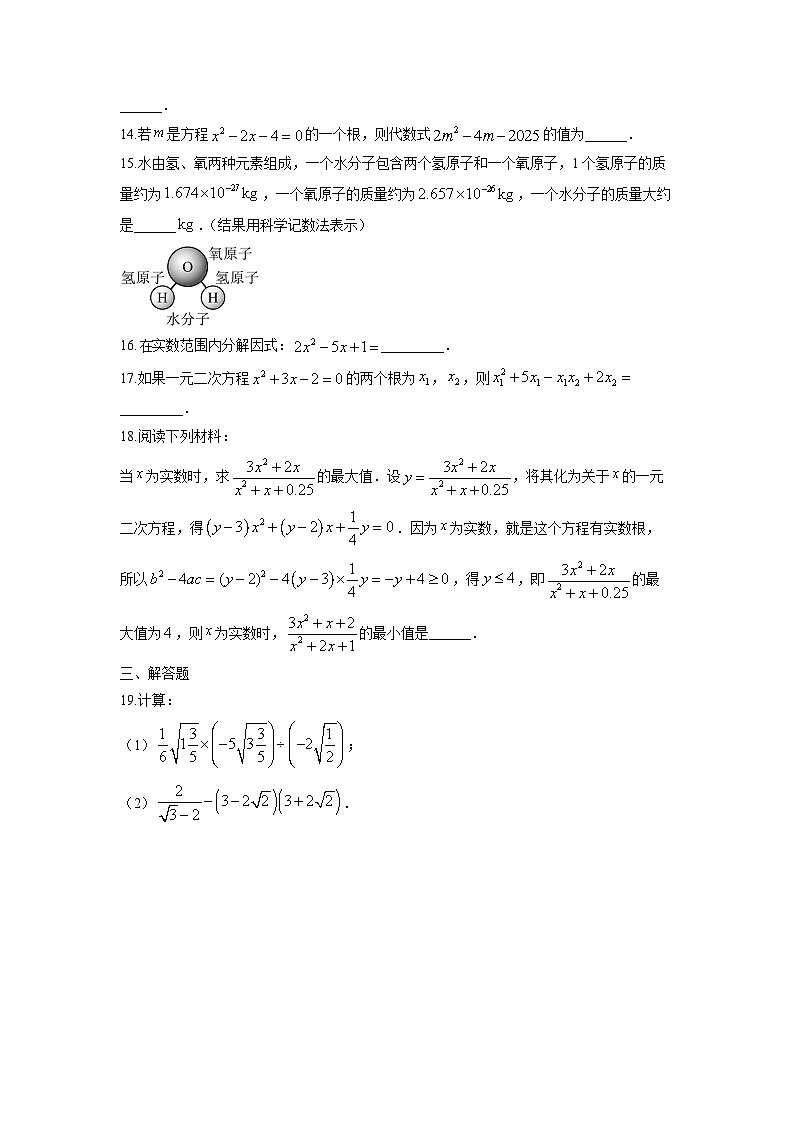 ______.
14.若m是方程x²－2x－4＝0的一个根，则代数式2m²－4m－2025的值为______.
15.水由氢、氧两种元素组成，一个水分子包含两个氢原子和一个氧原子，1个氢原子的质
量约为1.674×10⁻²⁷kg，一个氧原子的质量约为2.657×10⁻²⁶kg，一个水分子的质量大约
是______kg.（结果用科学记数法表示）
氧原子
O
氢原子 氢原子
H H
水分子
16.在实数范围内分解因式：2x²－5x＋1＝_________.
17.如果一元二次方程x²＋3x－2＝0的两个根为x₁，x₂，则x₁²＋5x₁－x₁x₂＋2x₂＝
_________.
18.阅读下列材料：
当x为实数时，求(3x²＋2x)/(x²＋x＋0.25)的最大值.设y＝(3x²＋2x)/(x²＋x＋0.25)，将其化为关于x的一元
二次方程，得(y－3)x²＋(y－2)x＋1/4y＝0.因为x为实数，就是这个方程有实数根，
所以b²－4ac＝(y－2)²－4(y－3)×1/4y＝－y＋4≥0，得y≤4，即(3x²＋2x)/(x²＋x＋0.25)的最
大值为4，则x为实数时，(3x²＋x＋2)/(x²＋2x＋1)的最小值是______.
三、解答题
19.计算：
（1）1/6√(1 3/5)×(－5√(3 3/5))÷(－2√(1/2))；
（2）2/(√3－2)－(3－2√2)(3＋2√2).